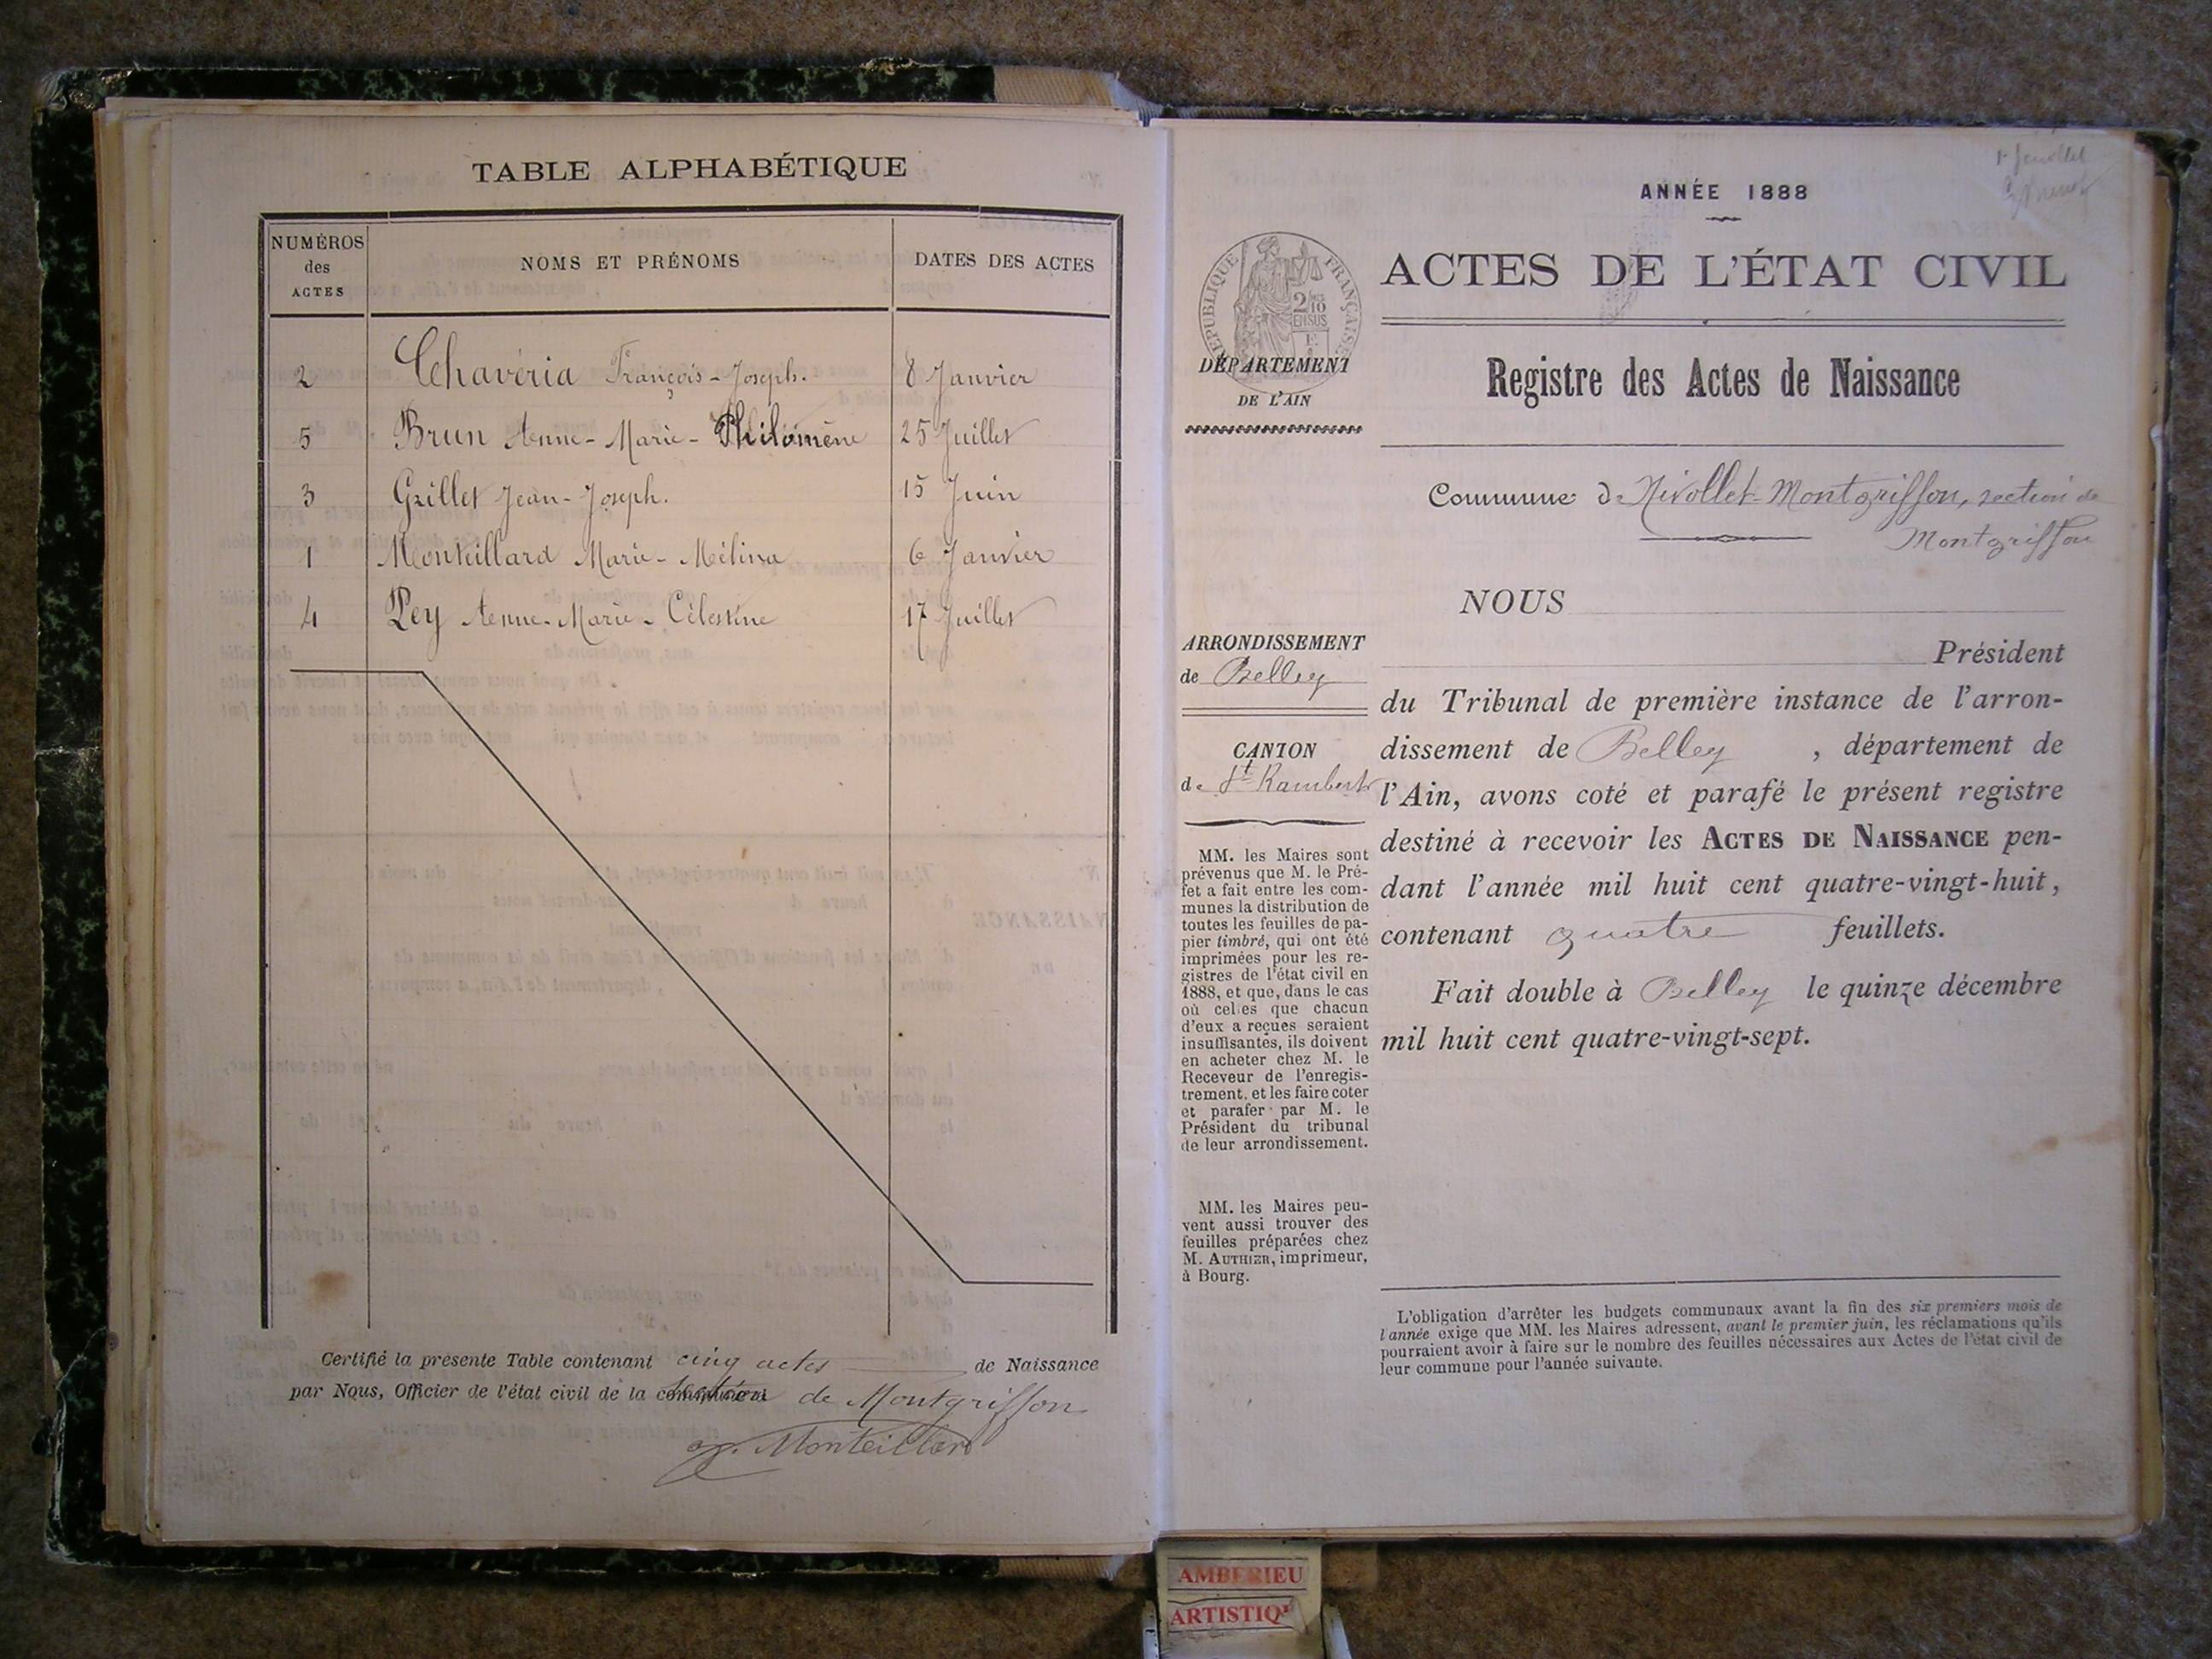 TABLE ALPHABÉTIQUE
NUMÉROS des ACTES
NOMS ET PRÉNOMS
DATES DES ACTES
2 Chavéria François-Joseph. 8 Janvier
5 Brun Anne-Marie-Philomène 25 Juillet
3 Grillet Jean-Joseph. 15 Juin
1 Monteillard Marie-Mélina 6 Janvier
4 Pey Anne-Marie-Célestine 17 Juillet
Certifié la présente Table contenant cinq actes de Naissance
par Nous, Officier de l'état civil de la de Montgriffon
Monteillard
1r feuillet
ANNÉE 1888
ACTES DE L'ÉTAT CIVIL
RÉPUBLIQUE FRANÇAISE
2/10
EN SUS
DÉPARTEMENT
DE L'AIN
Registre des Actes de Naissance
Commune de Nivollet-Montgriffon, section de
Montgriffon
NOUS
Président
du Tribunal de première instance de l'arron-
dissement de Belley , département de
l'Ain, avons coté et parafé le présent registre
destiné à recevoir les ACTES DE NAISSANCE pen-
dant l'année mil huit cent quatre-vingt-huit,
contenant quatre feuillets.
Fait double à Belley le quinze décembre
mil huit cent quatre-vingt-sept.
ARRONDISSEMENT
de Belley
CANTON
de St Rambert
MM. les Maires sont
prévenus que M. le Pré-
fet a fait entre les com-
munes la distribution de
toutes les feuilles de pa-
pier timbré, qui ont été
imprimées pour les re-
gistres de l'état civil en
1888, et que, dans le cas
où celles que chacun
d'eux a reçues seraient
insuffisantes, ils doivent
en acheter chez M. le
Receveur de l'enregis-
trement, et les faire coter
et parafer par M. le
Président du tribunal
de leur arrondissement.
MM. les Maires peu-
vent aussi trouver des
feuilles préparées chez
M. AUTHIER, imprimeur,
à Bourg.
L'obligation d'arrêter les budgets communaux avant la fin des six premiers mois de
l'année exige que MM. les Maires adressent, avant le premier juin, les réclamations qu'ils
pourraient avoir à faire sur le nombre des feuilles nécessaires aux Actes de l'état civil de
leur commune pour l'année suivante.
AMBERIEU
ARTISTIQ